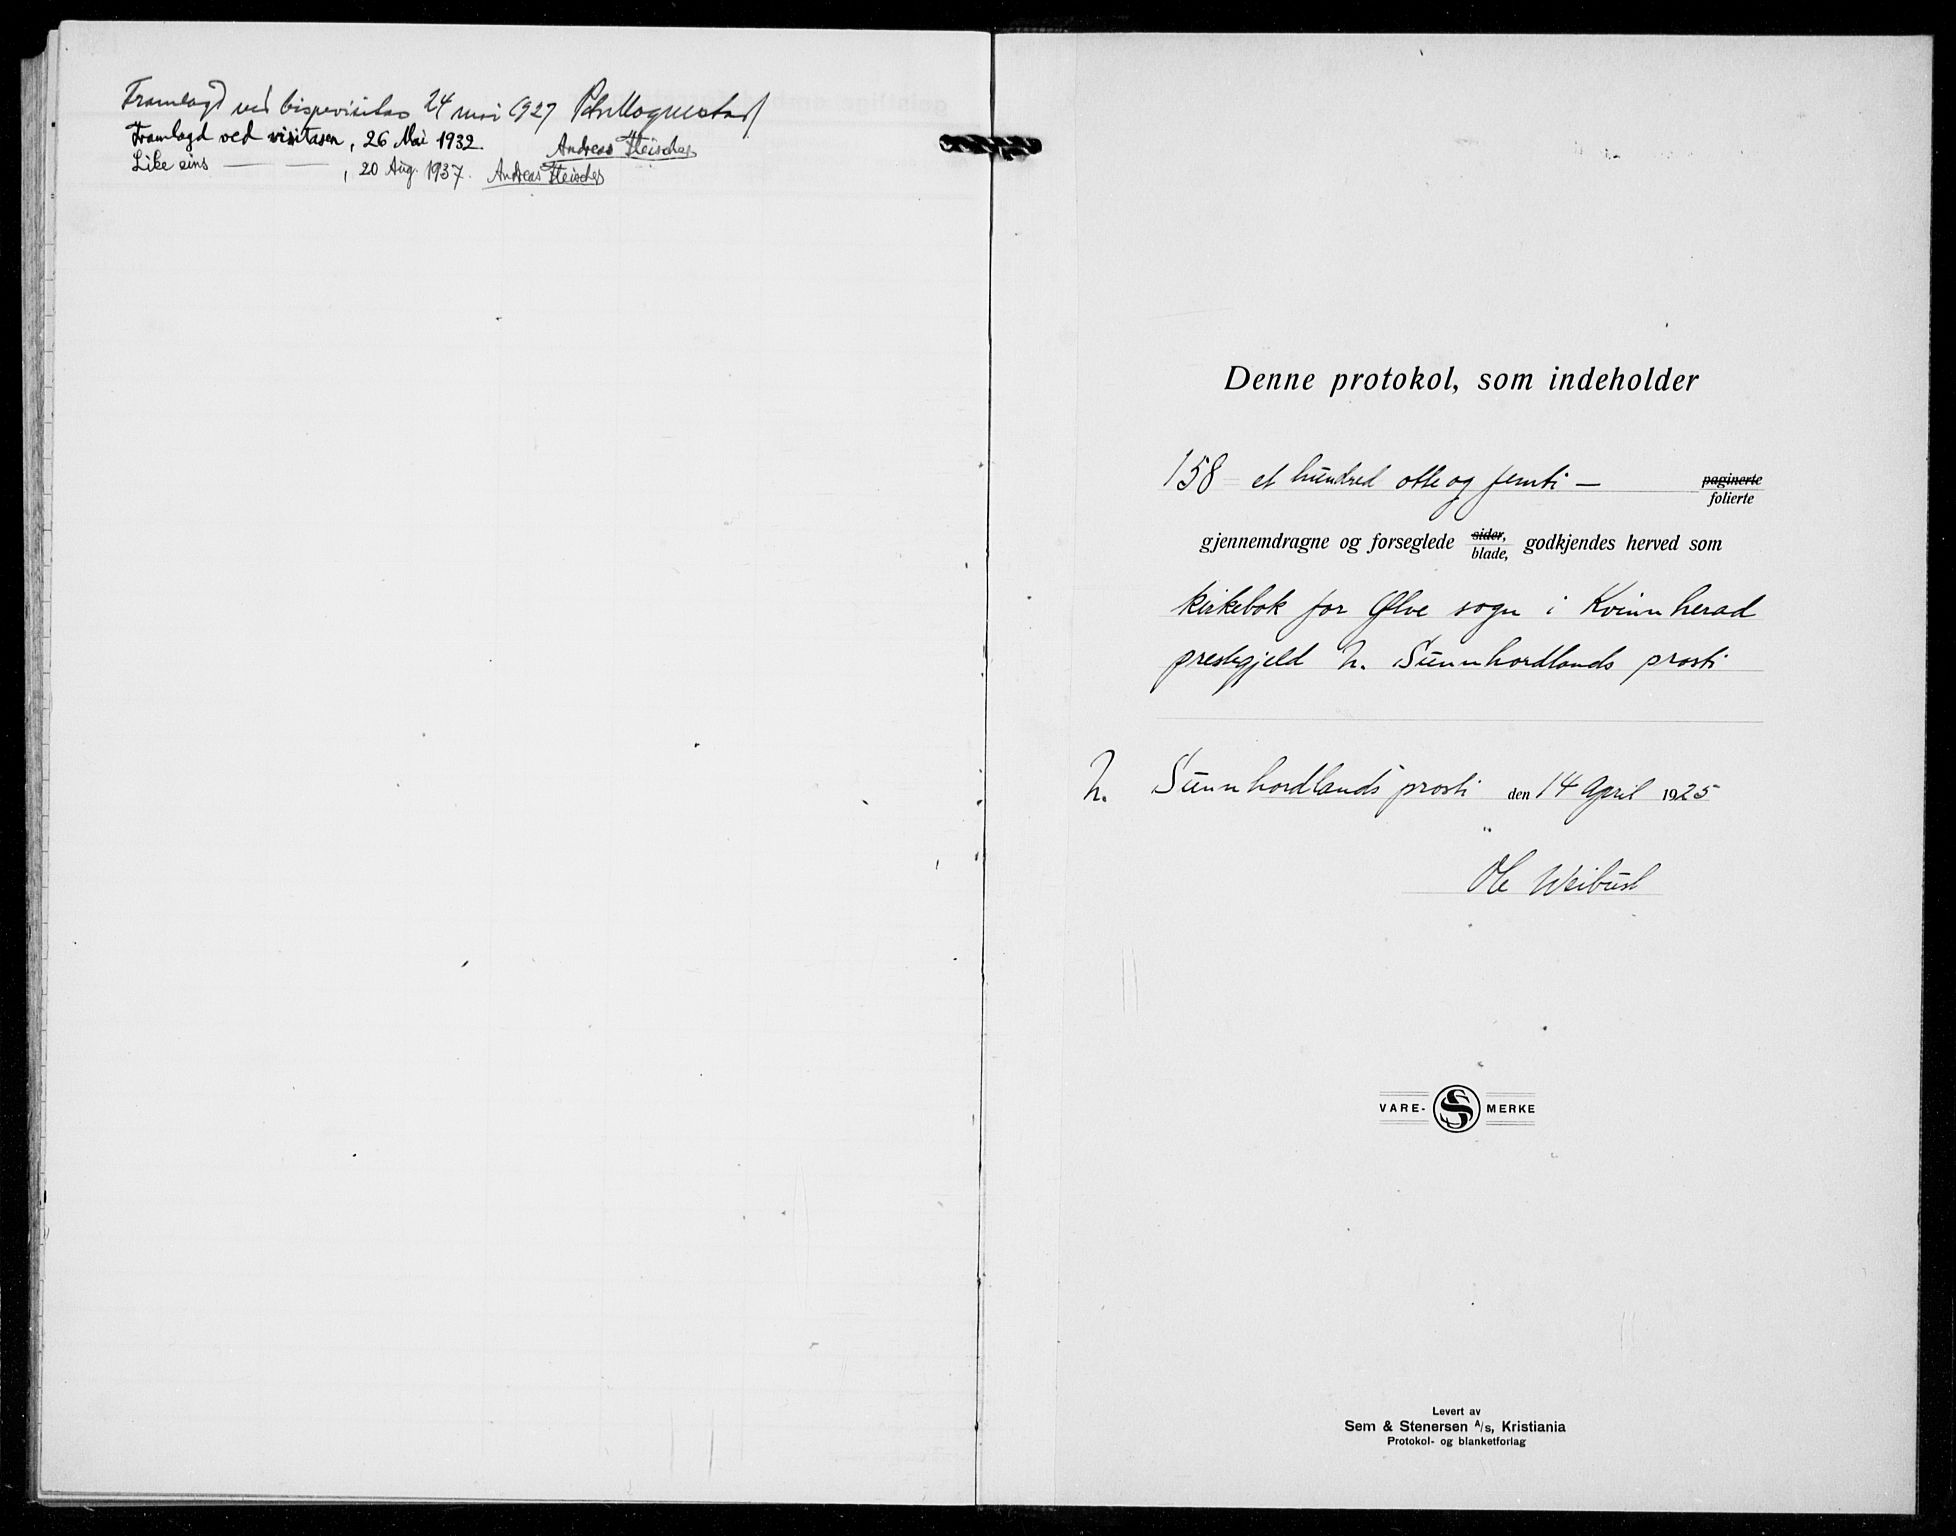 Framlagd ved bispevisitas 24 mai 1927 P. Hognestad
Framlagd ved visitasen, 26 Mai 1932. Andreas Fleischer
Like eins — — , 20 Aug. 1937. Andreas Fleischer
Denne protokol, som indeholder
158 et hundred otte og femti — paginerte
folierte
gjennemdragne og forseglede sider, godkjendes herved som
blade,
kirkebok for Ølve sogn i Kvinnherad
prestegjeld N. Sunnhordlands prosti
N. Sunnhordlands prosti den 14 April 1925
Ole Weibust
VARE- S MERKE
Levert av
Sem & Stenersen A/s, Kristiania
Protokol- og blanketforlag